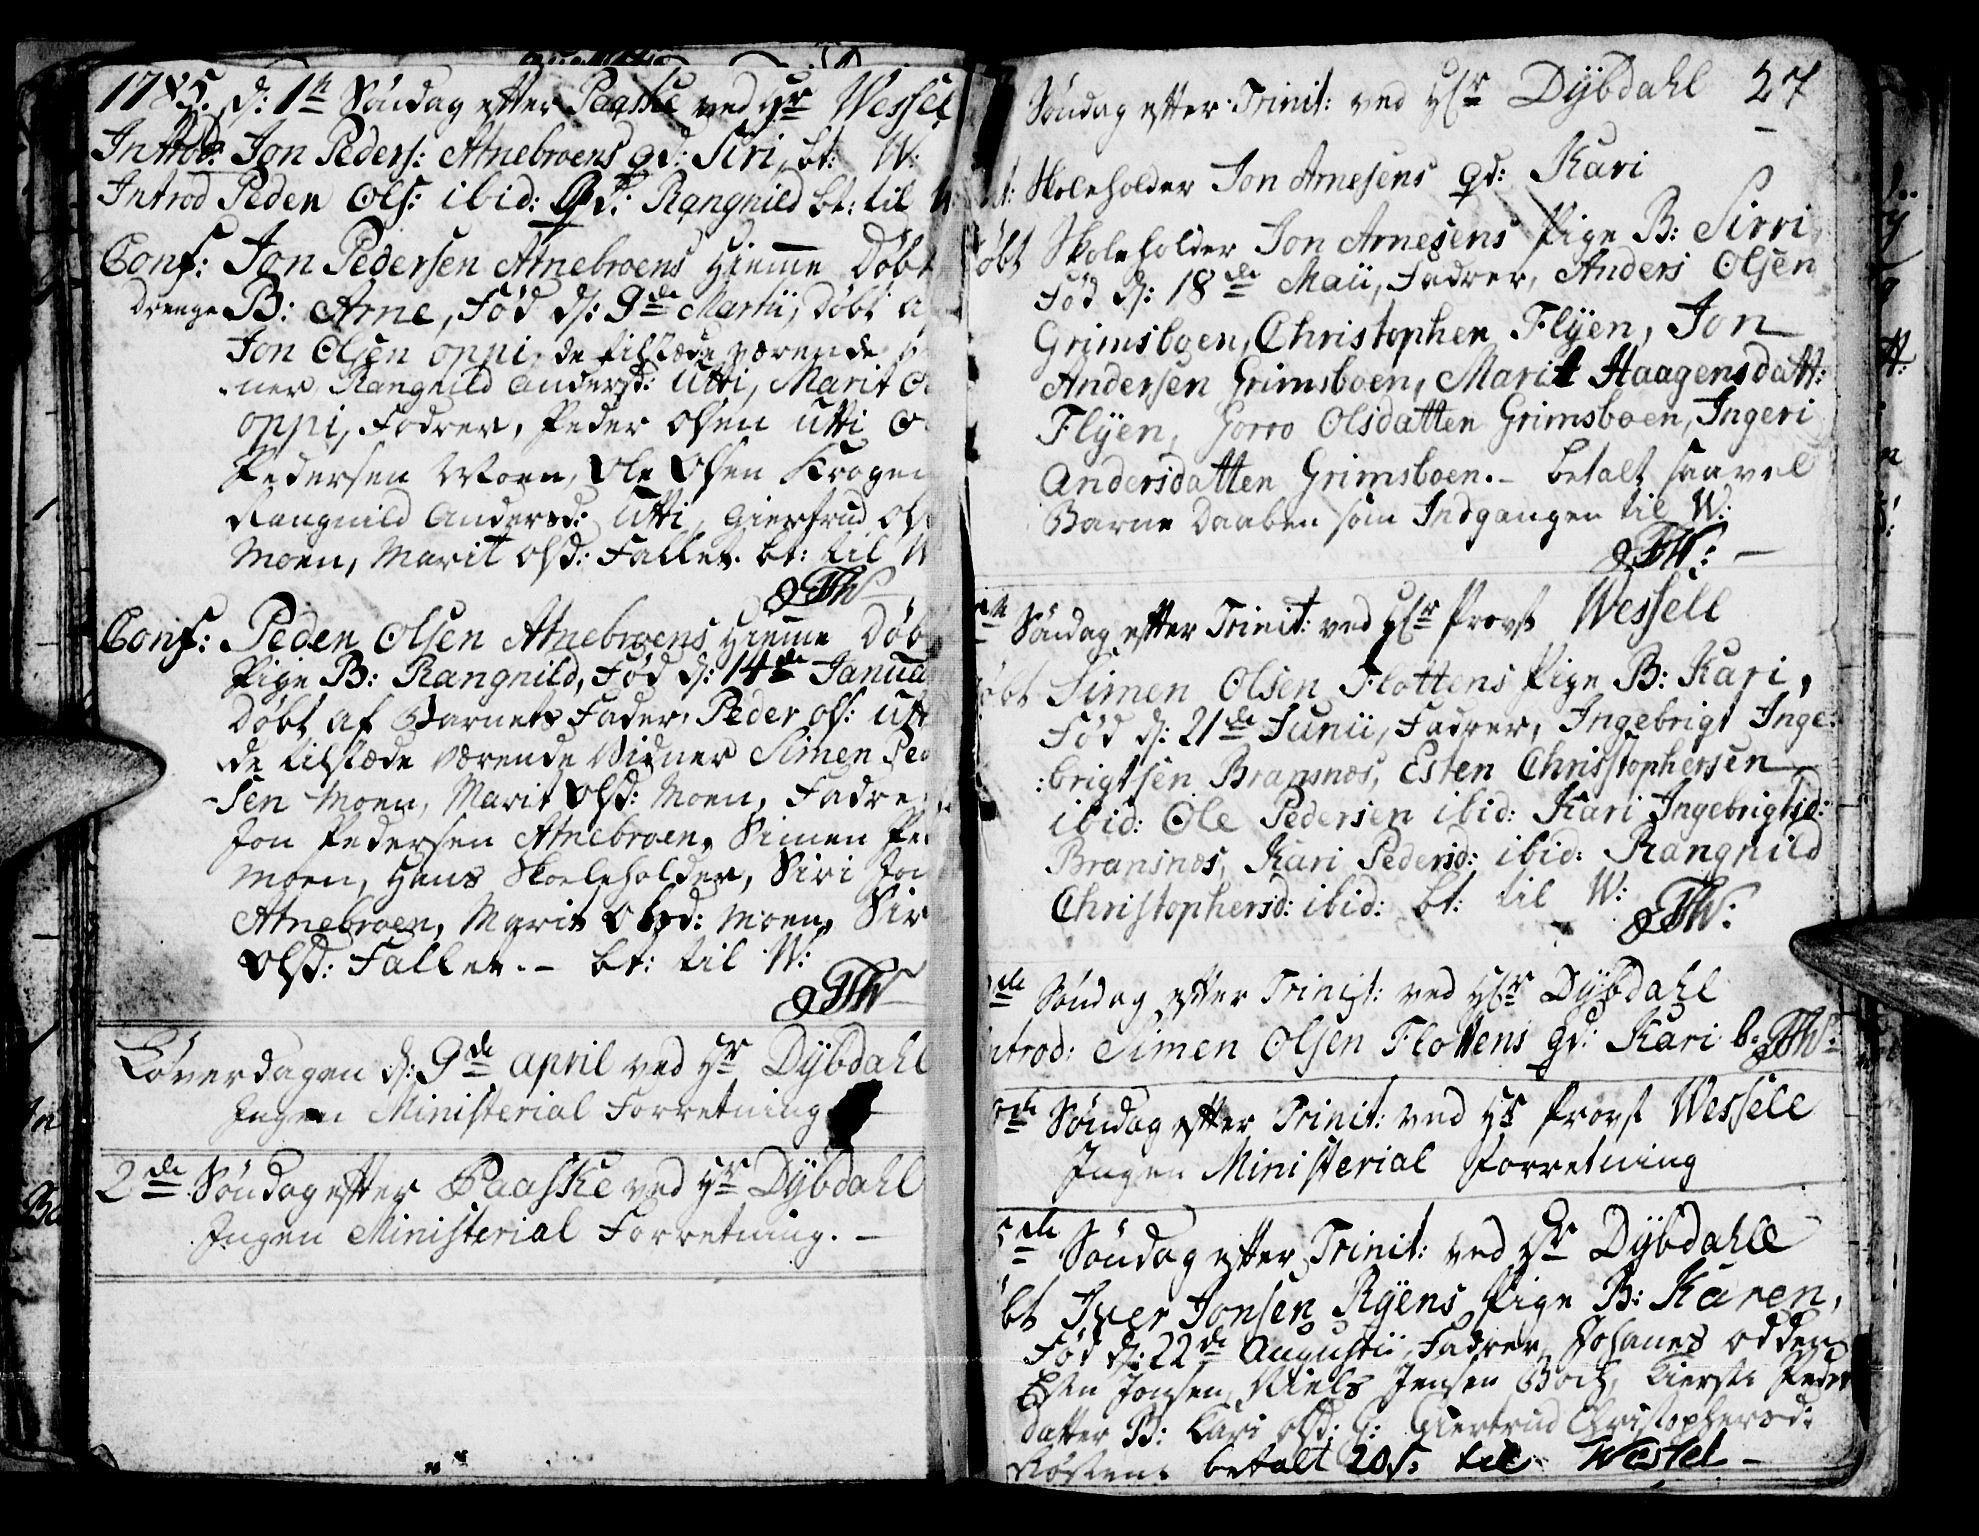 1785. d: 1ste Søndag efter Paaske ved Hr Wessel
Introd: Jon Peders: Atnebroens qd: Siri, bt: W:
Introd Peder Ols: ibid: Qd: Rangnild bt: til
Conf: Jon Pedersen Atnebroens Hieme Døbt
drenge B: Arne, Fød d: 9de Martii, Døbt a
Jon Olsen oppi, de tilstæde værende
ner Rangnild Andersd: Utti, Marit
oppi, Fadrer, Peder Olsen Utti
Pedersen Moen, Ole Olsen Krogen
Rangnild Andersd: Utti, Giertrud Ols
Moen, Marit Olsd: Fallet. bt: til W
Conf: Peder Olsen Atnebroens Hieme Døb
Pige B: Rangnild, Fød d: 14de Janua
Døbt af Barnets Fader Peder Ols: Utt
de tilstæde værende Vidner Simen Ped
sen Moen, Marit Olsd: Moen, Fadre
Jon Pedersen Atnebroen, Simen Pe
Moen, Hans Skoleholder, Siri Jon
Atnebroen, Marit Olsd: Moen, Sir
Olsd: Fallet. - bt: til W:
Løverdagen d: 9de April ved Hr Dybdahl
Ingen Ministerial Forretning
2de Søndag efter Paaske ved Hr Dÿbdahl
Ingen Ministerial Forretning. -
Søndag efter Trinit: ved Hr Dÿbdahl 27
Skoleholder Jon Arnesens qd: Kari
øbt Skoleholder Jon Arnesens Pige B: Sirri,
Fød d: 18de Maii, Fadrer, Anders Olsen
Grimsboen, Christopher Flÿen, Jon
Andersen Grimsboen, Marit Haagensdatt:
Flÿen, Gorro Olsdatter Grimsboen, Ingeri
Andersdatter Grimsboen. - betalt saavel
Barne Daaben som Indgangen til W:
Søndag efter Trinit: ved Hr Provst Wessell
øbt Simen Olsen Flottens Pige B: Kari,
Fød d: 21de Junii, Fadrer, Ingebrigt Inge:
:brigtsen Bransnes, Esten Christophersen
ibid: Ole Pedersen ibid: Kari Ingebrigtsd:
Bransnes, Kari Pedersd: ibid: Rangnild
Christophersd: ibid: bt: til W:
de Søndag efter Trinit: ved Hr Dÿbdahl
ntrod: Simen Olsen Flottens qd: Kari b.
de Søndag efter Trinit: ved Hr Provst Wessele
Ingen Ministerial Forretning
de Søndag efter Trinit: ved Hr Dÿbdahle
bt Iver Jonsen Rÿens Pige B: Karen,
Fød d: 22de Augustii, Fadrer, Johanes Odden
Esten Jonsen, Niels Jensen Kiersti Peder
datter B: Kari Olsd: G: Giertrud Christophersd:
betalt 20s: til Wessel -